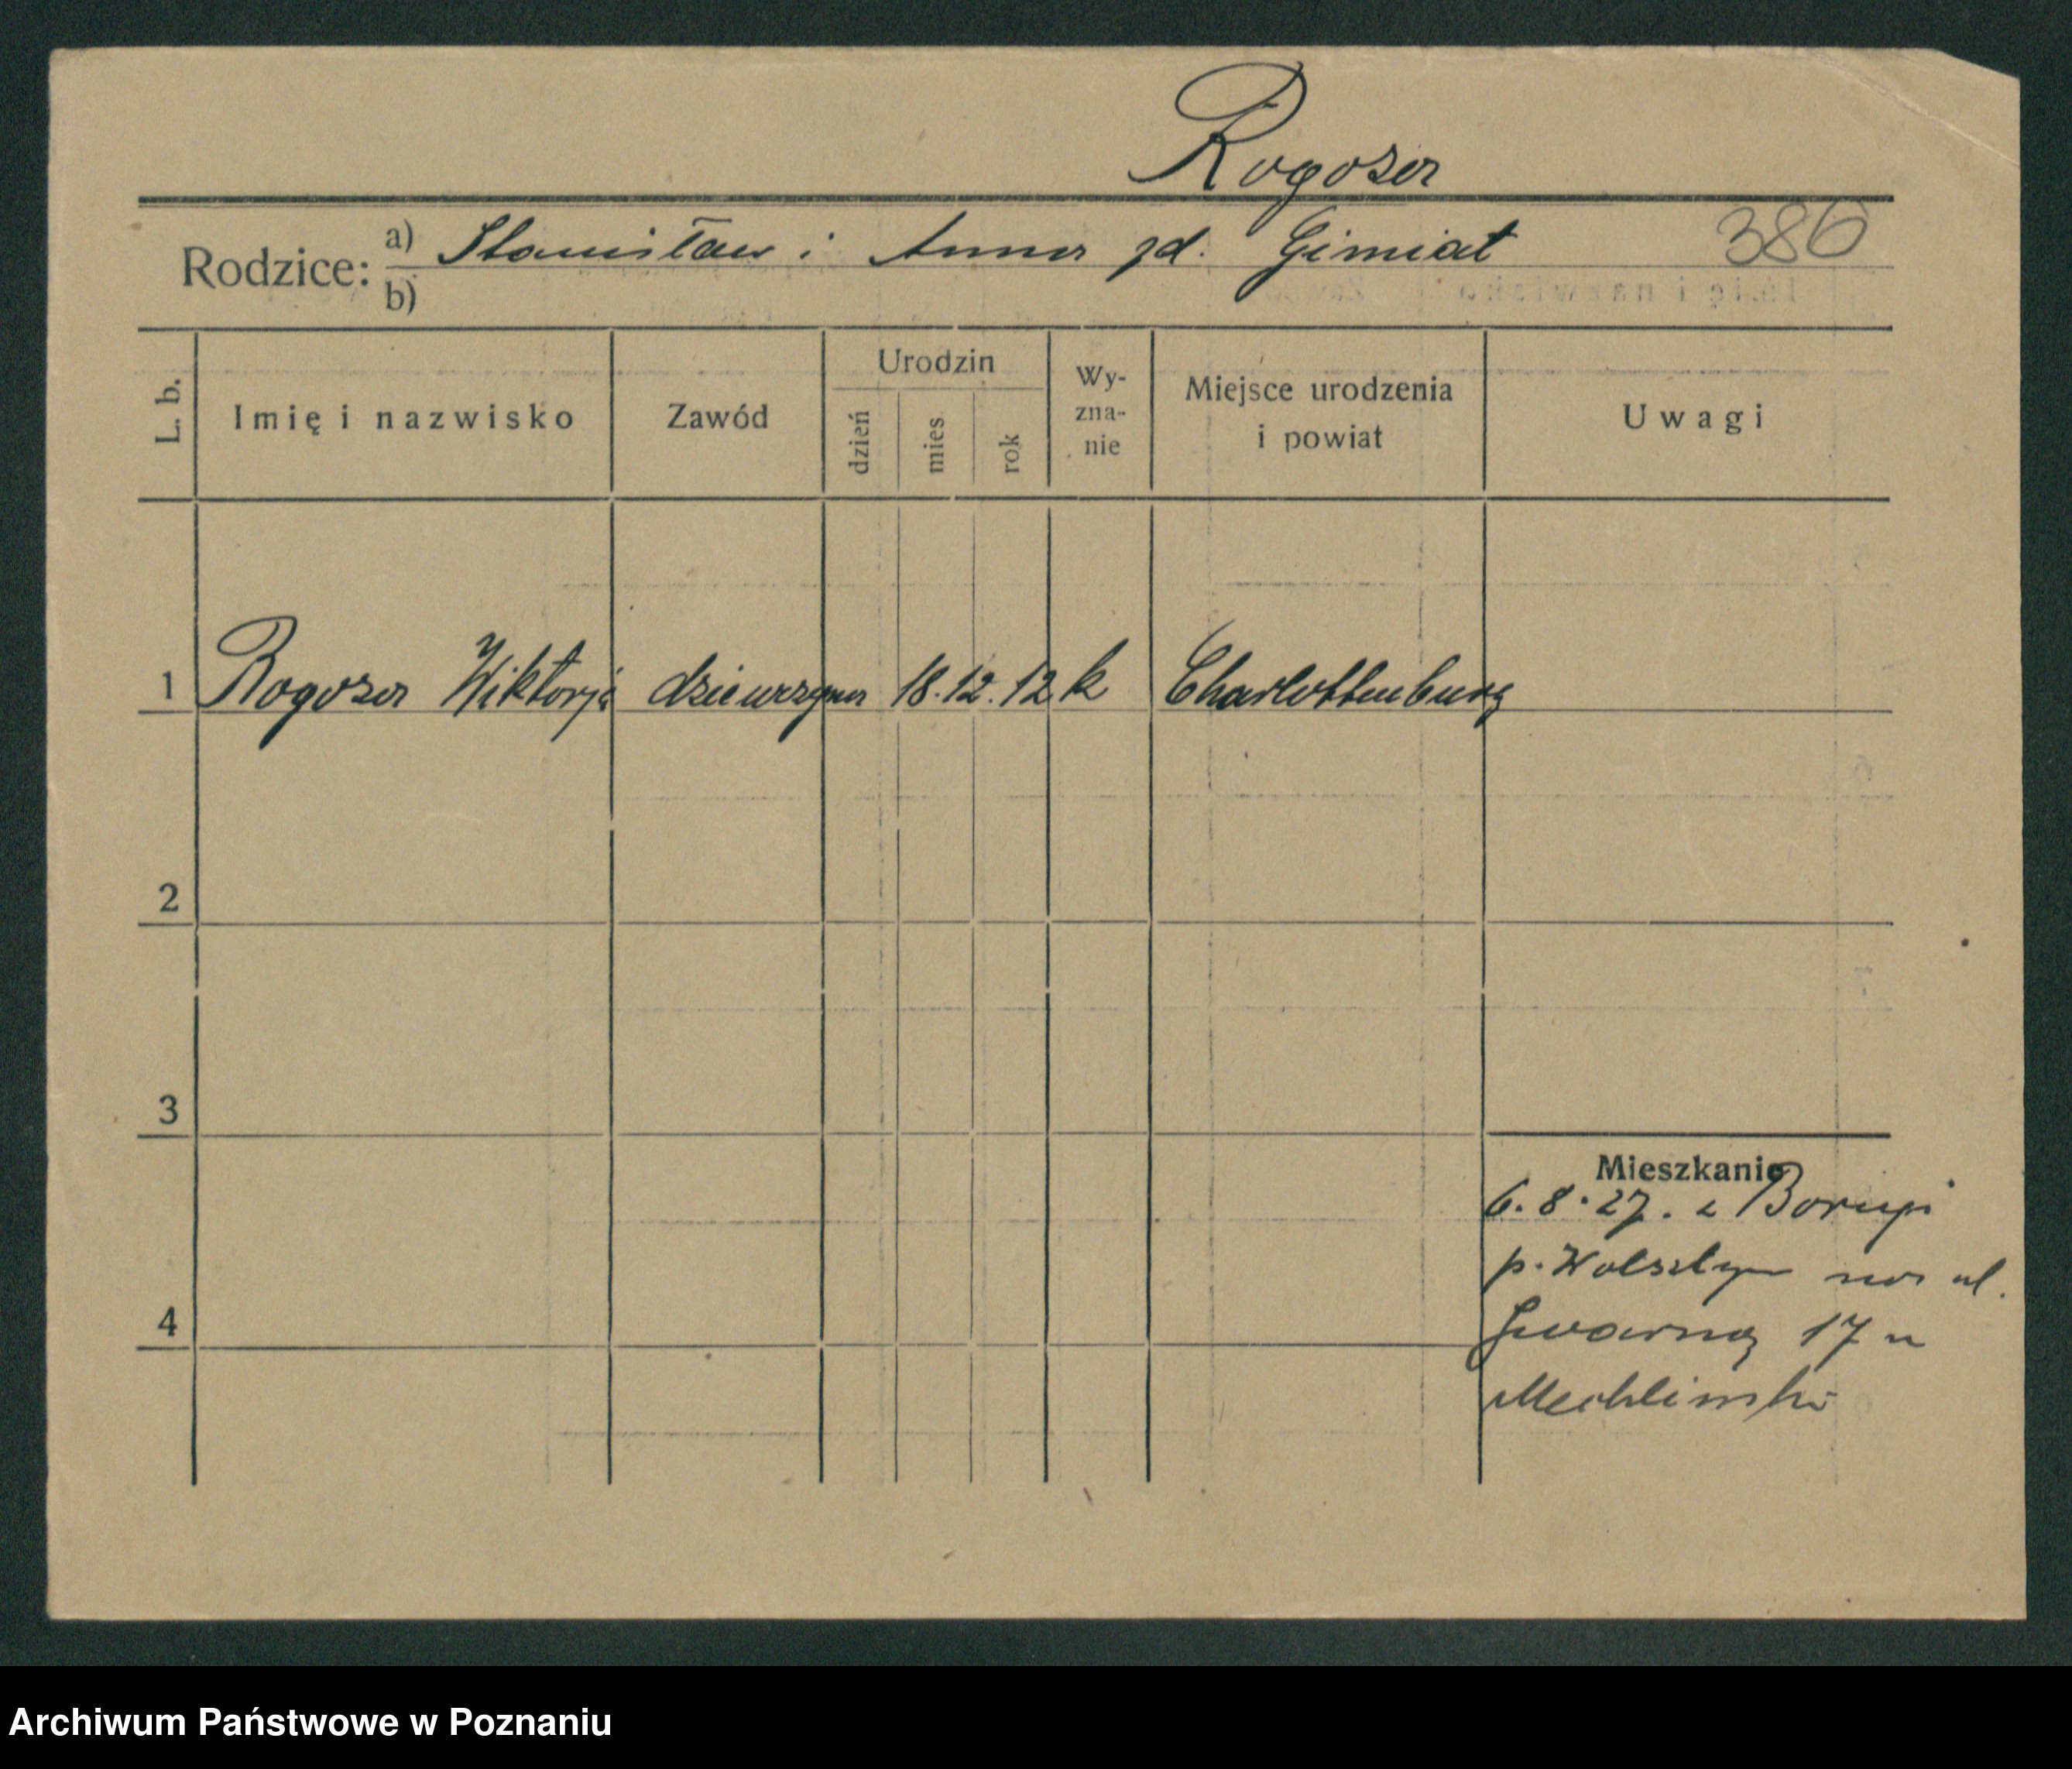 Rogosa
Rodzice: a) Stanisław i Anna zd. Gimiat 386
b)
L. b. Imię i nazwisko Zawód Urodzin dzień mies rok Wy-zna-nie Miejsce urodzenia i powiat Uwagi
1 Rogosa Wiktorja dziewczyna 18. 12. 12 k Charlottenburg
2
3
Mieszkanie
6. 8. 27. z Borui
p. Wolsztyn na ul.
4
Gwarną 17 u
Mechlinski
Archiwum Państwowe w Poznaniu